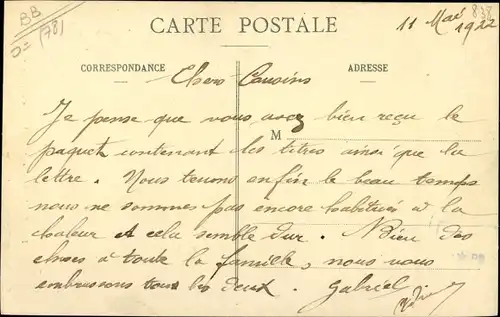 BB
(78)
838
CARTE POSTALE
11 Mai 1922
CORRESPONDANCE
ADRESSE
Chers Cousins
Je pense que vous avez bien reçu le
M
paquet contenant les titres ainsi que la
lettre. Nous tenons enfin le beau temps
nous ne sommes pas encore habitués à la
chaleur et cela semble dur. Bien des
choses à toute la famille, nous vous
embrassons tous les deux. Gabriel